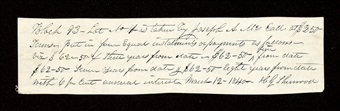 Block 93 - Lot No 1 is taken by Joseph A. Mc Call at $250
Terms put in four Equal instalments repayments as follows
viz $62-50 three years from date $62-50 from date
$62-50 Seven years from date $62-50 Eight years from date
with 6 pr Cent annual interest March 12 - 184 H G Sherwood